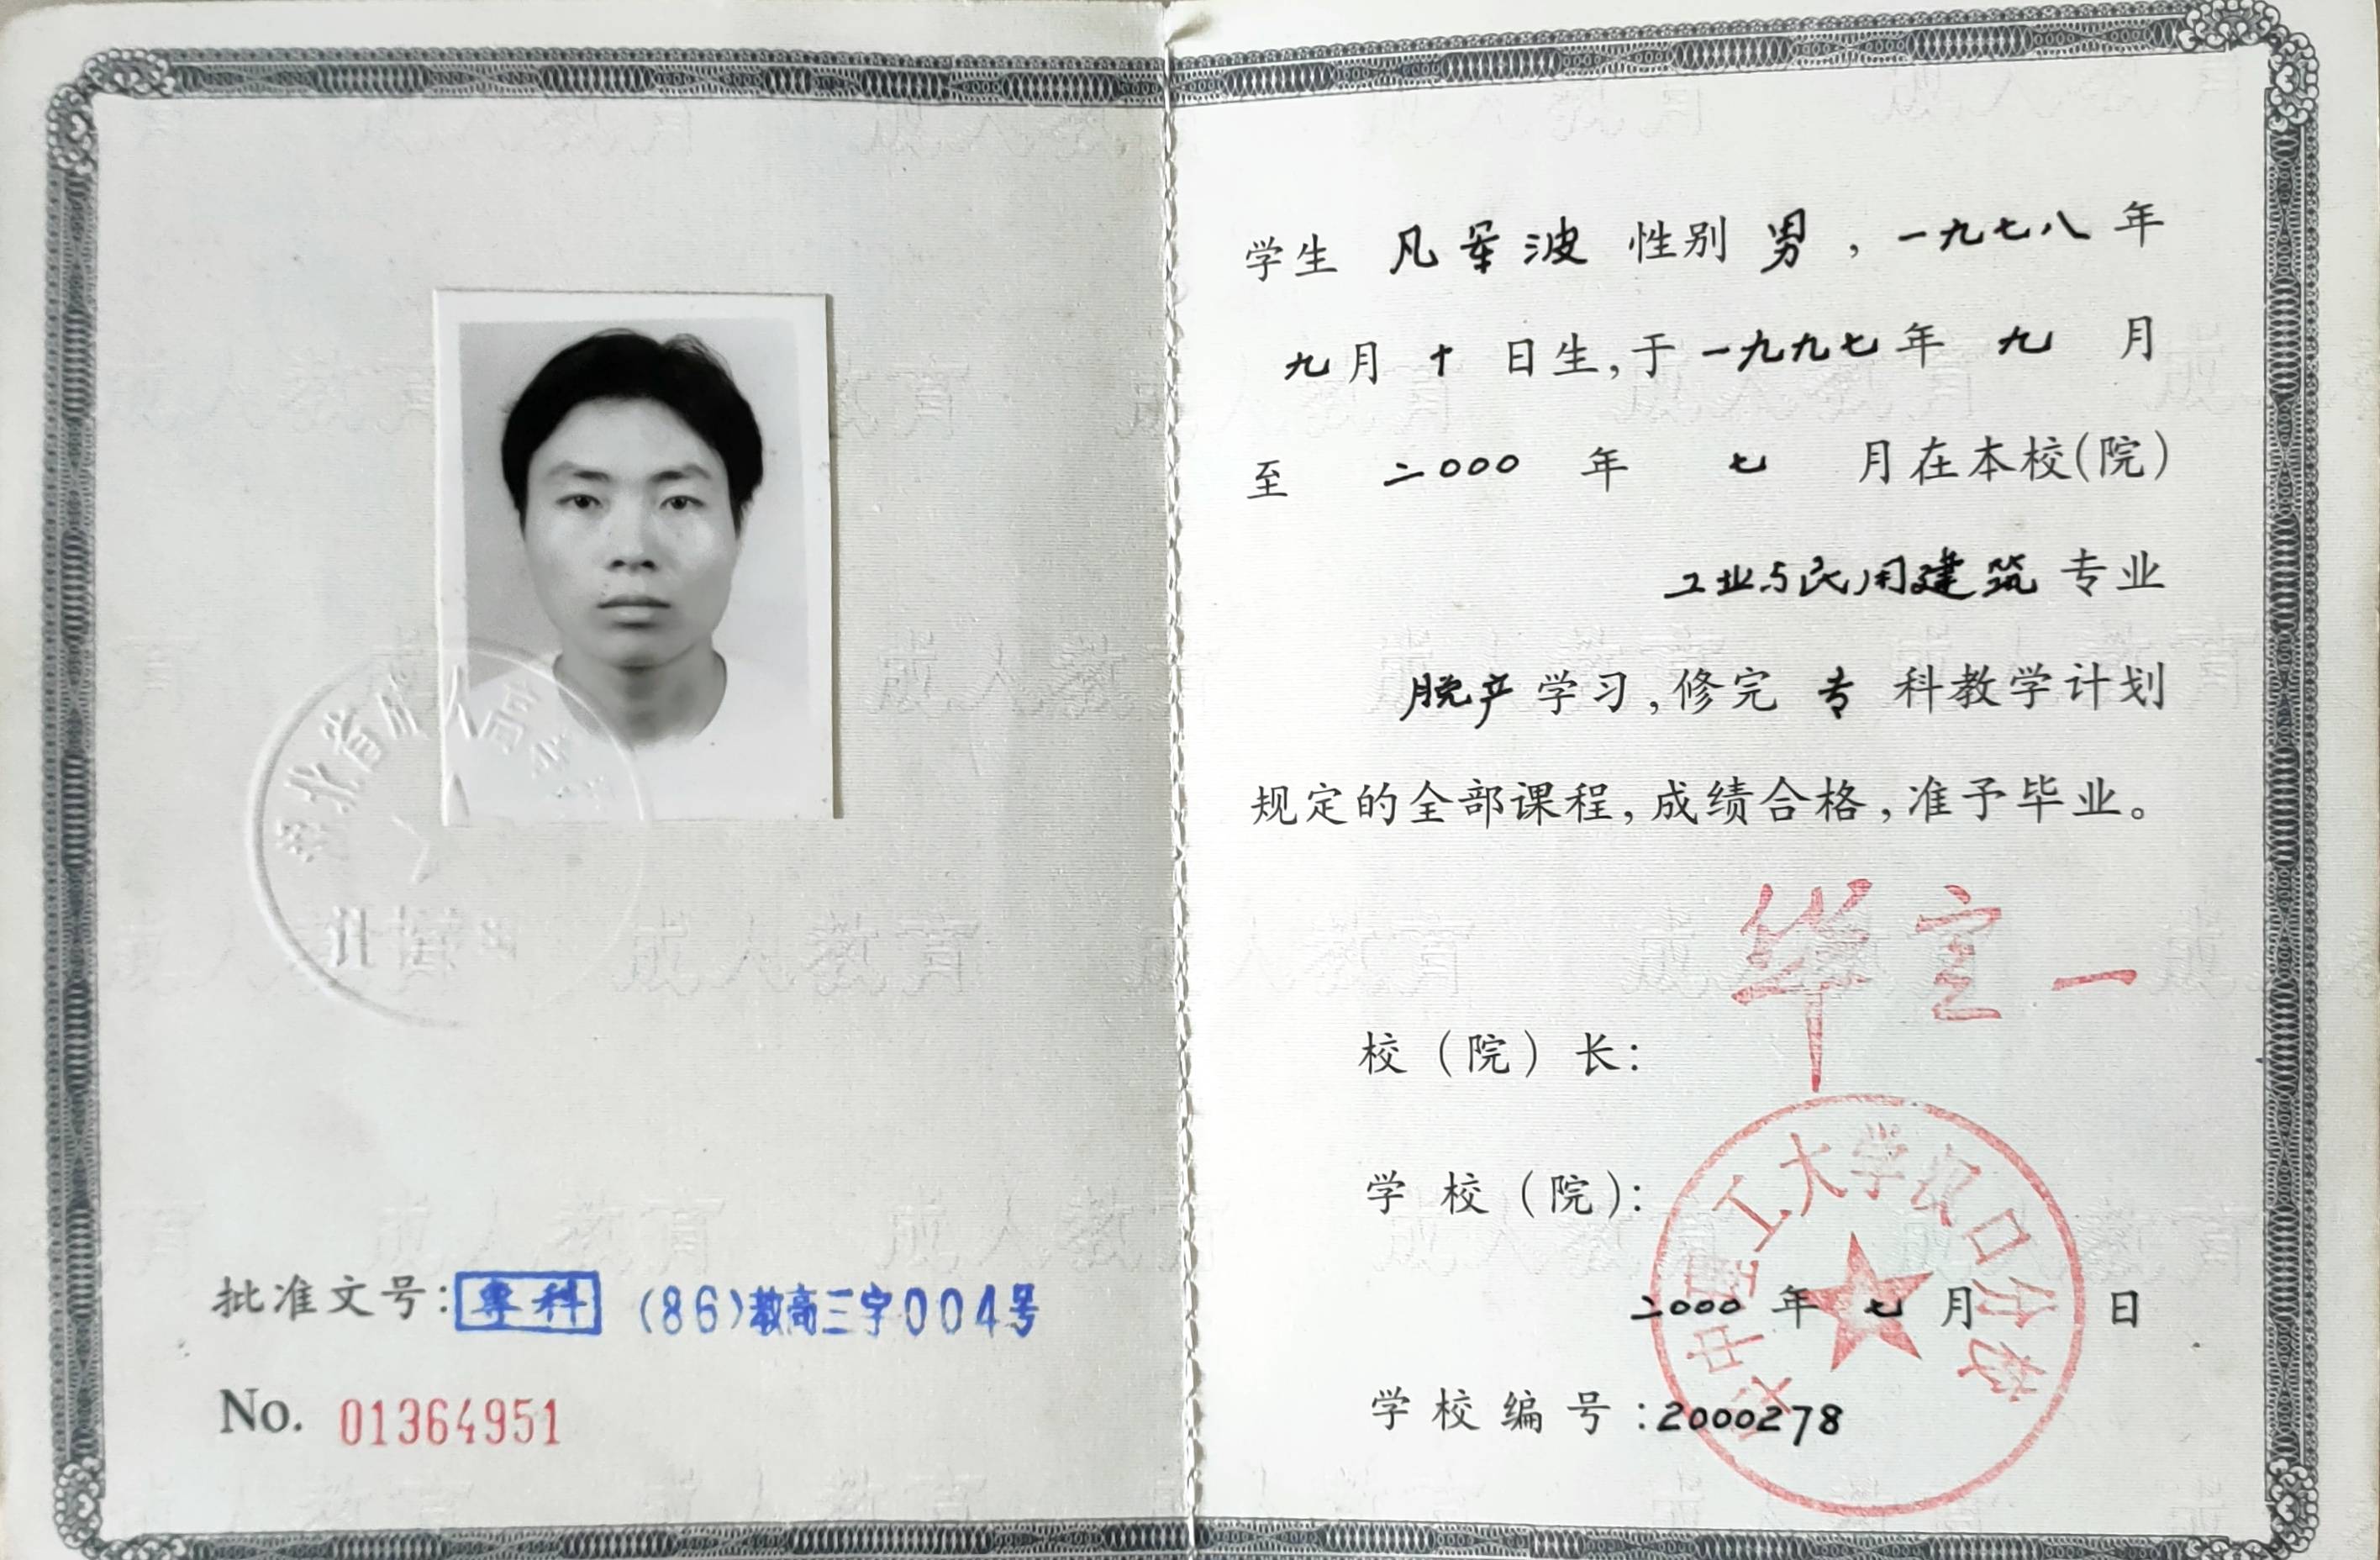 批准文号:专科 (86)教高三字004号
No. 01364951
学生 凡军波 性别 男 , 一九七八 年
九 月 十 日生,于 一九九七 年 九 月
至 二000 年 七 月在本校(院)
工业与民用建筑 专业
脱产 学习,修完 专 科教学计划
规定的全部课程,成绩合格,准予毕业。
校(院)长:
学 校(院):
华中理工大学汉口分校
二000 年 七 月 日
学校编号:2000278
成人教育